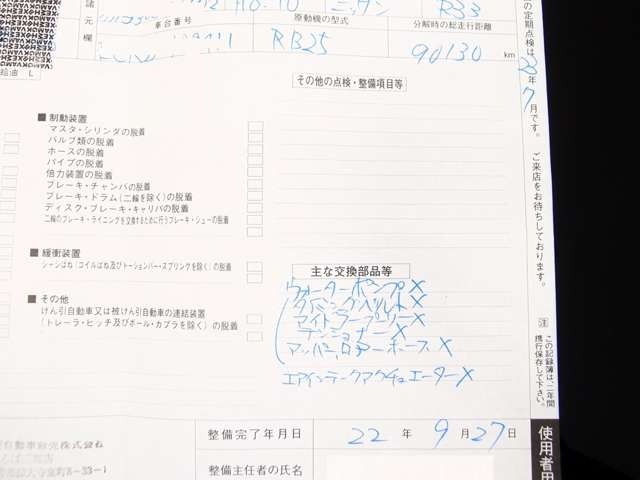 諸元欄
H6.10
ニッサン
R33
車台番号
原動機の型式
分解時の総走行距離
RB25
90130 km
の定期点検は23年7月です。
ご来店をお待ちしております。
給油 L
その他の点検・整備項目等
■ 制動装置
マスタ・シリンダの脱着
バルブ類の脱着
ホースの脱着
パイプの脱着
倍力装置の脱着
ブレーキ・チャンバの脱着
ブレーキ・ドラム(二輪を除く)の脱着
ディスク・ブレーキ・キャリパの脱着
二輪のブレーキ・ライニングを交換するために行うブレーキ・シューの脱着
■ 緩衝装置
シャシばね(コイルばね及びトーションバー・スプリングを除く)の脱着
■ その他
けん引自動車又は被けん引自動車の連結装置
(トレーラ・ヒッチ及びボール・カプラを除く)の脱着
主な交換部品等
ウォーターポンプ X
タイミングベルト X
アイドラープーリー X
テンショナー X
アッパー,ロアーホース X
エアインテークアクチュエーター X
注 この記録簿は、二年間携行保存して下さい。
整備完了年月日
22 年 9 月 27 日
整備主任者の氏名
使用者用
自動車販売株式会社